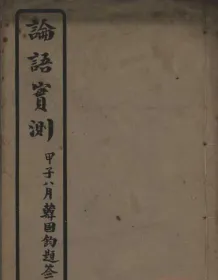 論語實測
甲子八月韓國鈞題荃